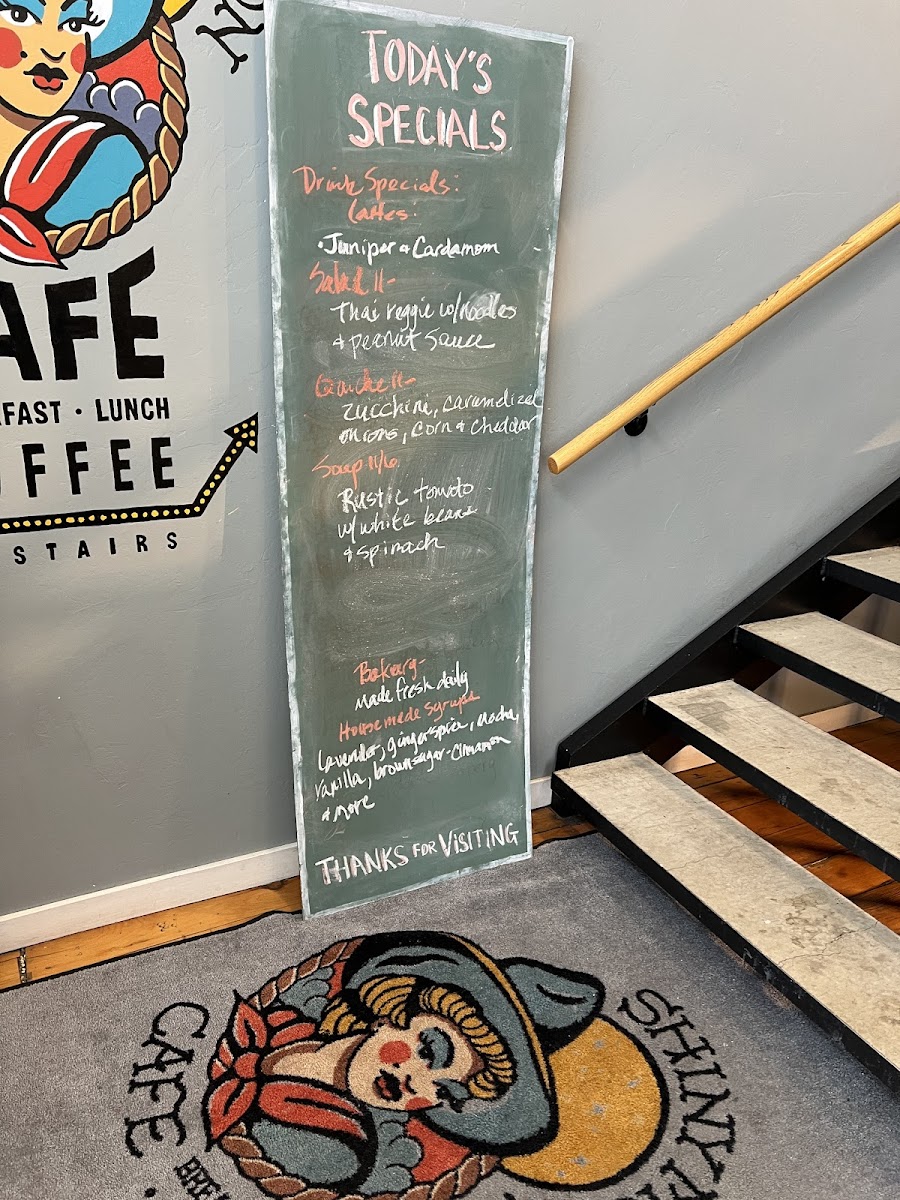 NO
AFE
FAST · LUNCH
OFFEE
STAIRS
TODAY'S
SPECIALS
Drink Specials:
Lattes.
•Juniper & Cardamom
Salad 11-
Thai veggie w/noodles
& peanut sauce
Quiche 11-
Zucchini, caramelized
onions, corn & cheddar
Soup 11/6
Rustic tomato
w/white beans
& spinach
Bakery-
Made fresh daily
House made syrups
Lavender, gingerspice, Mocha,
Vanilla, brown sugar-Cinnamon
& more
THANKS FOR VISITING
CAFE
SHINY
BRE